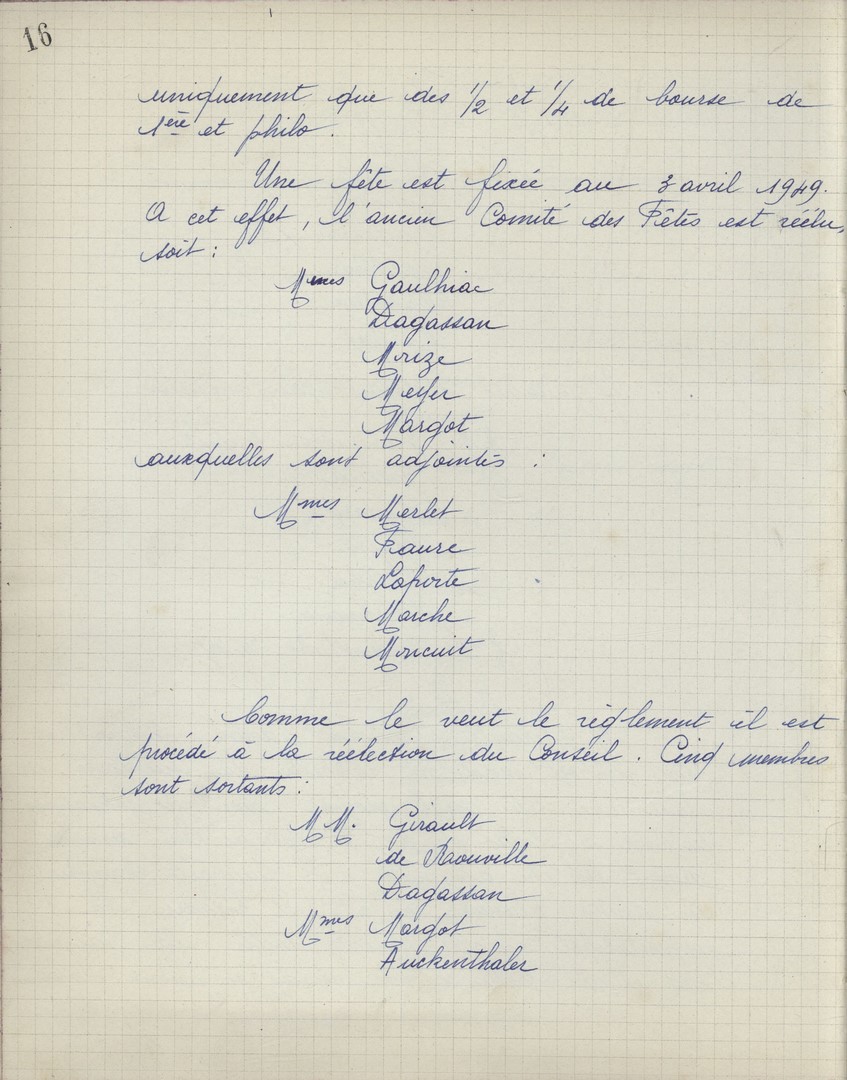 16
uniquement que des 1/2 et 1/4 de bourse de
1ère et philo.
Une fête est fixée au 3 avril 1949.
A cet effet, l'ancien Comité des Fêtes est réélu,
soit :
Mmes Gaulhiac
Dagassan
Mrize
Meyer
Margot
auxquelles sont adjointes :
Mmes Merlet
Faure
Laporte
Marche
Moncuit
Comme le veut le règlement il est
procédé à la réélection du Conseil. Cinq membres
sont sortants :
MM. Girault
de Raouville
Dagassan
Mmes Margot
Auckenthaler